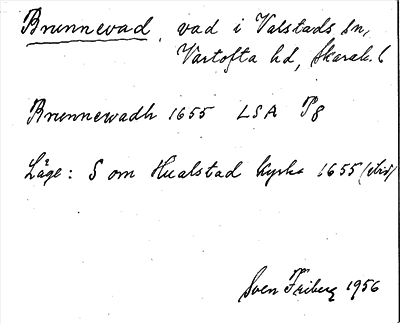 Brunnevad, vad i Valstads sn,
Vartofta hd, Skarab. l
Brunnewadh 1655 LSA P8
Läge: S om Hualstad kyrka 1655 (ibid)
Sven Friberg 1956